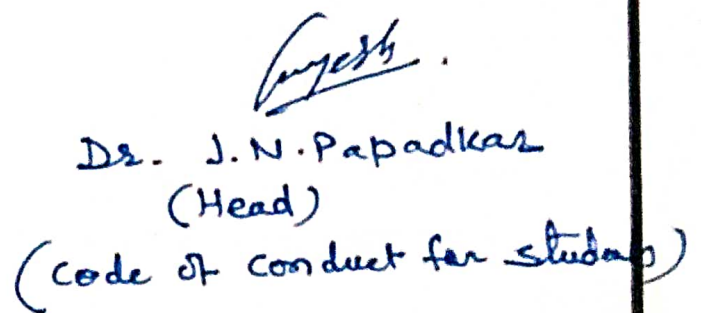 Dr. J.N. Papadkar
(Head)
(Code of Conduct for students)